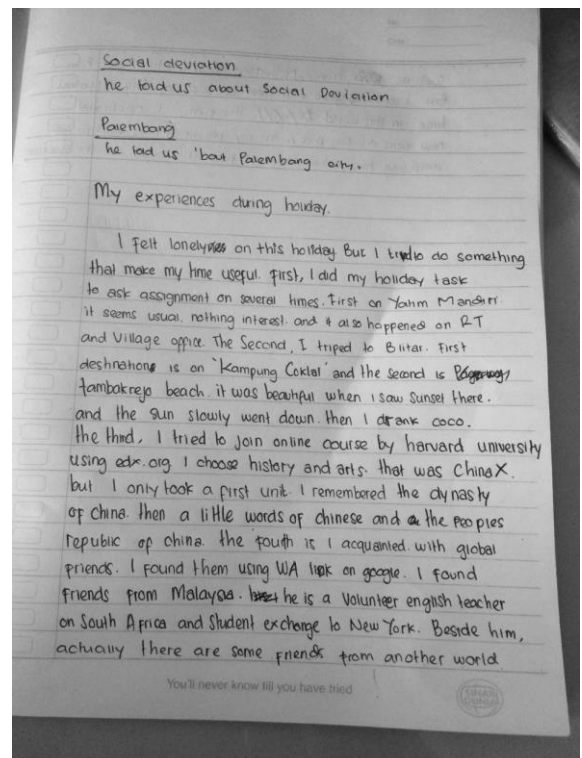 Social deviation
he told us about Social Deviation
Palembang
he told us 'bout Palembang city.
My experiences during holiday.
I felt lonely on this holiday But I tried to do something
that make my time useful. first, I did my holiday task
to ask assignment on several times. First on Yatim Mandiri.
it seems usual. nothing interest. and it also happened on RT
and Village office. The Second, I triped to Blitar. First
destinations is on "Kampung Coklat" and the second is
tambakrejo beach. it was beautiful when I saw Sunset there.
and the sun slowly went down. then I drank coco.
the third, I tried to join online course by harvard university
using edx.org I choose history and arts. that was ChinaX.
but I only took a first unit. I remembered the dynasty
of china. then a little words of chinese and the Peoples
republic of china. the fouth is I acquainted with global
friends. I found them using WA link on google. I found
friends from Malaysia. he is a Volunteer english teacher
on South Africa and Student exchange to New York. Beside him,
actually there are some friends from another world
You'll never know till you have tried
SINAR
DUNIA